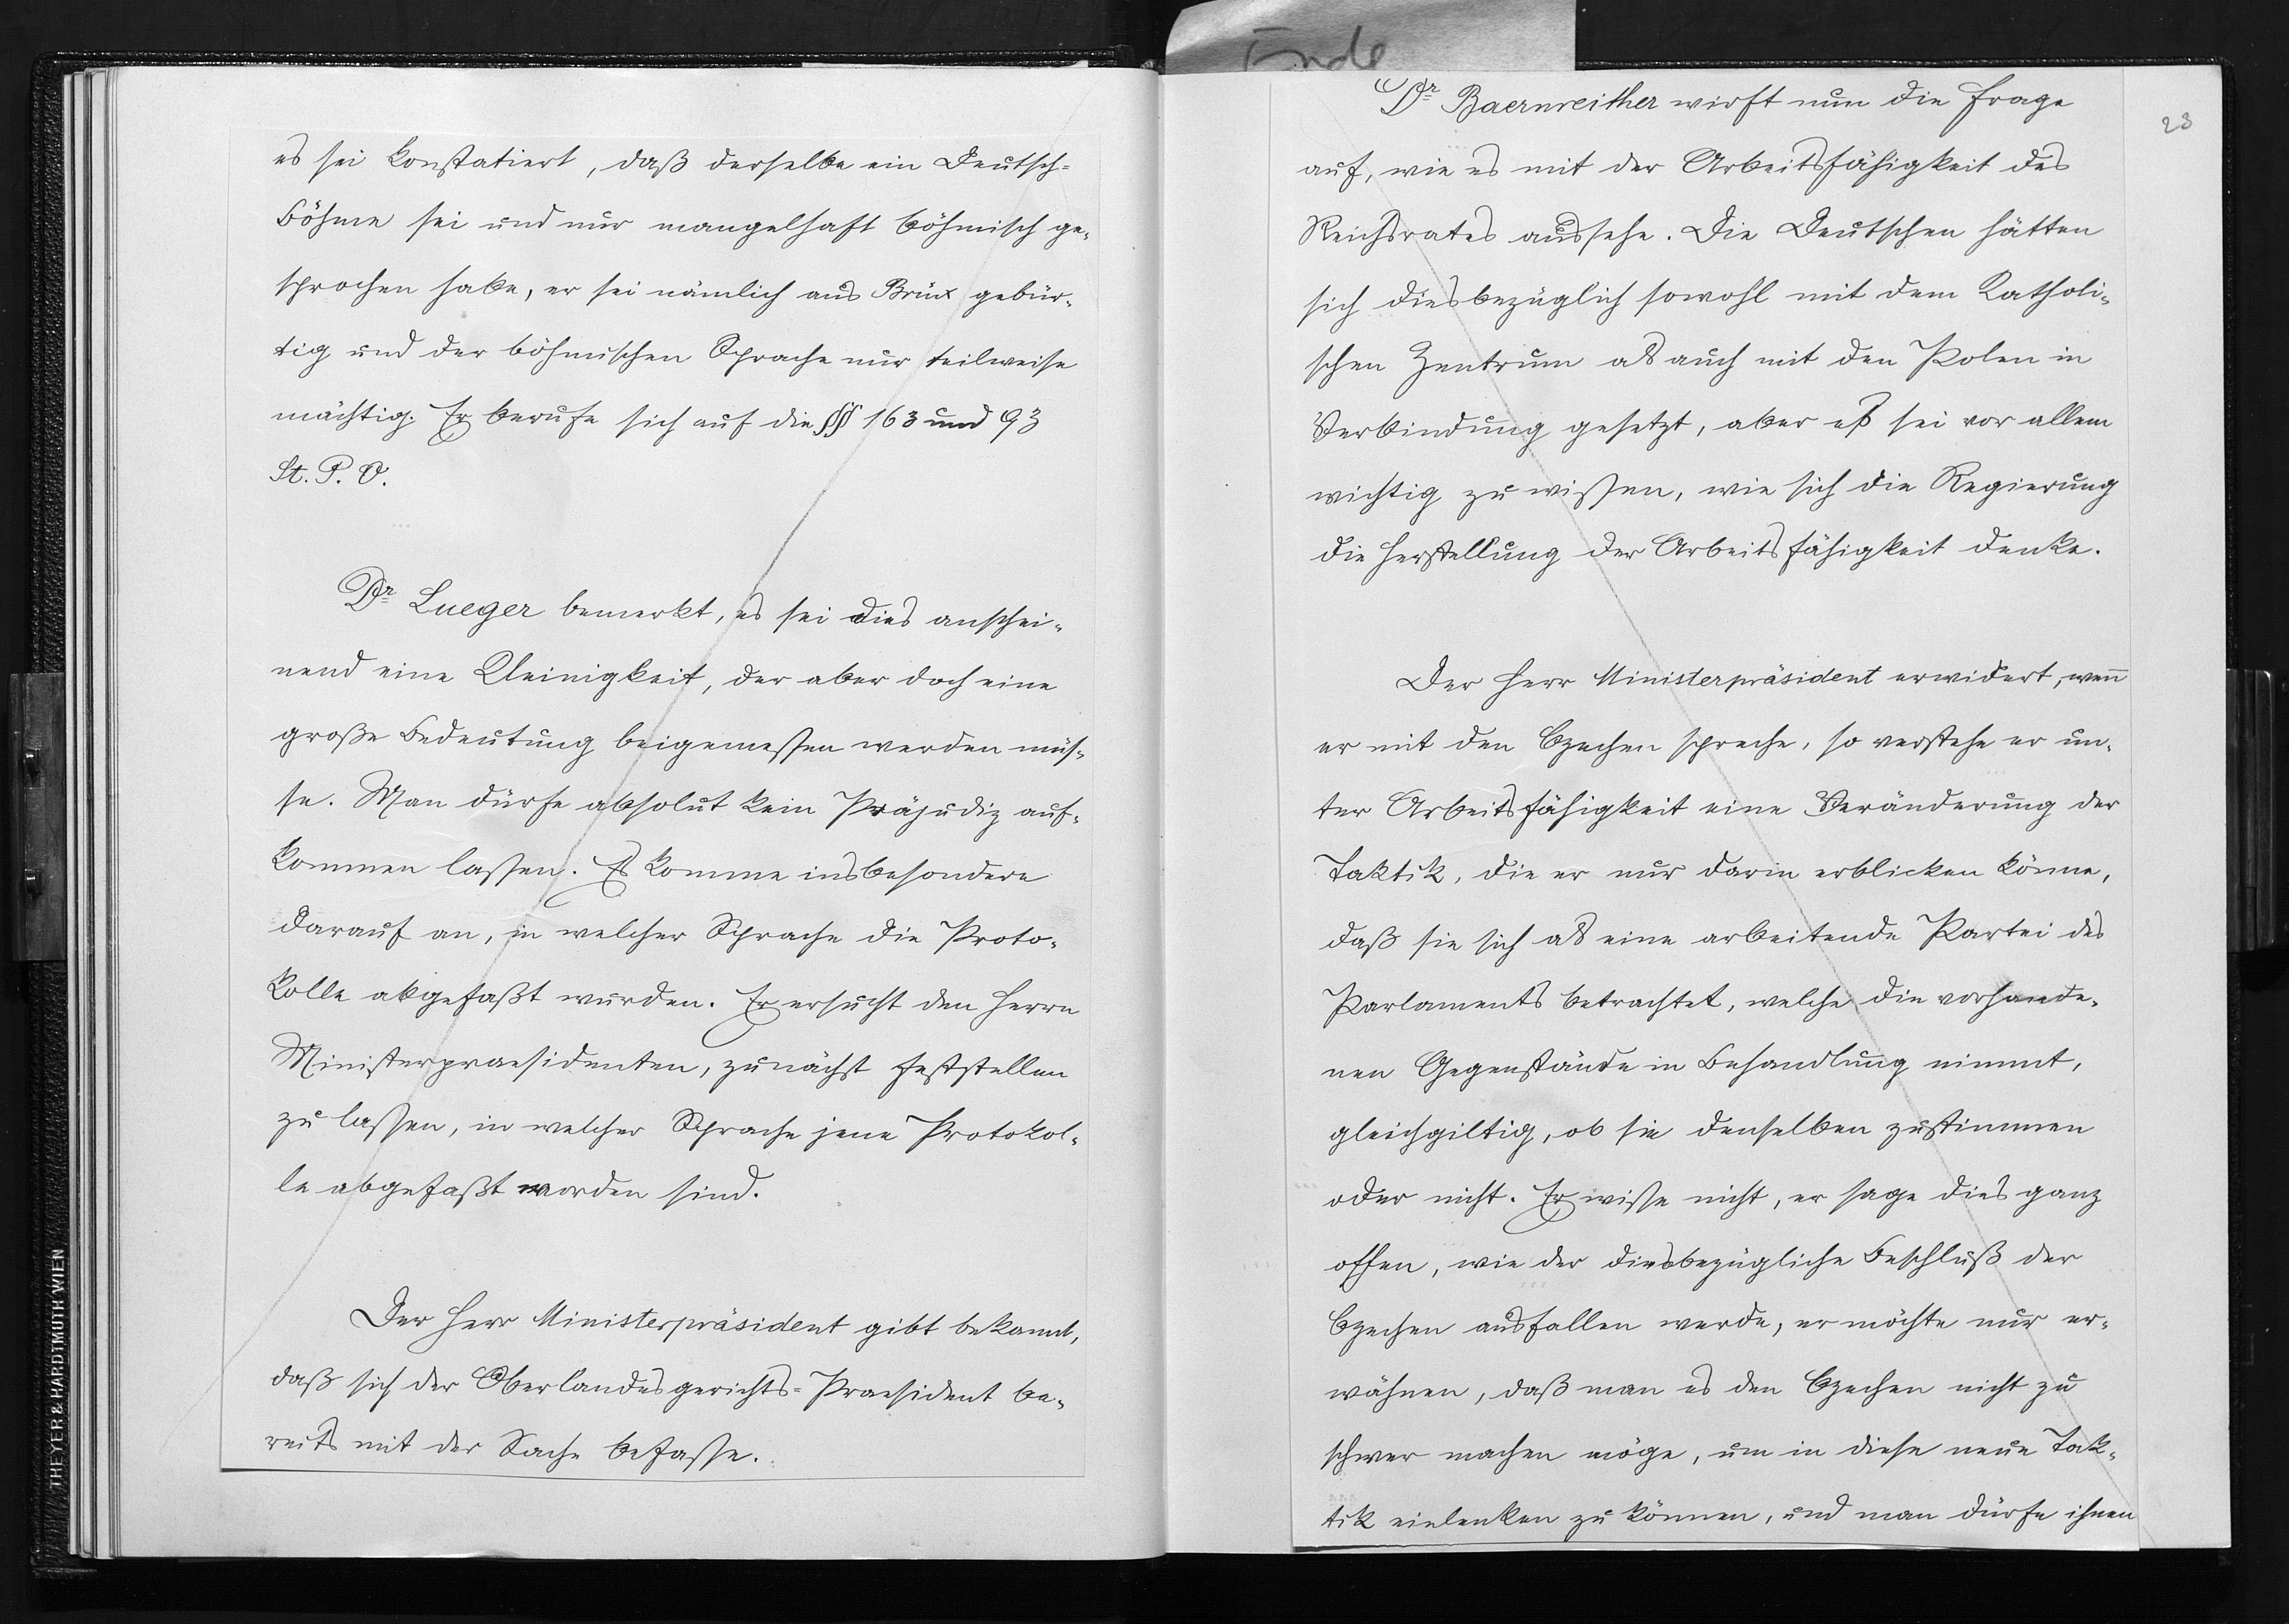 es sei konstatiert, daß derselbe ein Deutsch-
Böhme sei und nur mangelhaft böhmisch ge-
sprochen habe, er sei nämlich aus Brüx gebür-
tig und der böhmischen Sprache nur teilweise
mächtig. Er berufe sich auf die §§ 163 und 93
St. P. O.
Dr Lueger bemerkt, es sei dies anschei-
nend eine Kleinigkeit, der aber doch eine
große Bedeutung beigemessen werden müs-
se. Man dürfe absolut kein Präjudiz auf-
kommen lassen. Es komme insbesondere
darauf an, in welcher Sprache die Proto-
kolle abgefaßt wurden. Er ersucht den Herrn
Ministerpraesidenten, zunächst feststellen
zu lassen, in welcher Sprache jene Protokol-
le abgefaßt worden sind.
Der Herr Ministerpräsident gibt bekannt,
daß sich der Oberlandesgerichts-Praesident be-
reits mit der Sache befasse.
Ende
23
Dr Baernreither wirft nun die Frage
auf, wie es mit der Arbeitsfähigkeit des
Reichsrates aussehe. Die Deutschen hätten
sich diesbezüglich sowohl mit dem Katholi-
schen Zentrum als auch mit den Polen in
Verbindung gesetzt, aber es sei vor allem
wichtig zu wissen, wie sich die Regierung
die Herstellung der Arbeitsfähigkeit denke.
Der Herr Ministerpräsident erwidert, wenn
er mit den Czechen spreche, so verstehe er un-
ter Arbeitsfähigkeit eine Veränderung der
Taktik, die er nur darin erblicken könne,
daß sie sich als eine arbeitende Partei des
Parlaments betrachtet, welche die vorhande-
nen Gegenstände in Behandlung nimmt,
gleichgiltig, ob sie denselben zustimmen
oder nicht. Er wisse nicht, er sage dies ganz
offen, wie der diesbezügliche Beschluß der
Czechen ausfallen werde, er möchte nur er-
wähnen, daß man es den Czechen nicht zu
schwer machen möge, um in diese neue Tak-
tik einlenken zu können, und man dürfe ihnen
THEYER & HARDTMUTH WIEN